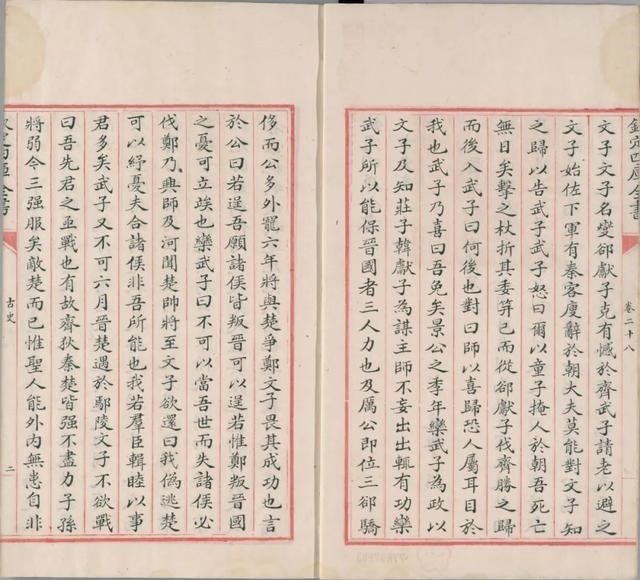 欽定四庫全書
卷二十八
文子文子名燮郤獻子克有憾於齊武子請老以避之
文子始佐下軍有秦客廋辭於朝大夫莫能對文子知
之歸以告武子武子怒曰爾以童子掩人於朝吾死亡
無日矣擊之杖折其委笄已而從郤獻子伐齊勝之歸
而後入武子曰何後也對曰師以喜歸恐人屬耳目於
我也武子乃喜曰吾免矣景公之季年欒武子為政以
文子及知莊子韓獻子為謀主師不妄出出輒有功欒
武子所以能保晉國者三人力也及厲公即位三郤驕
侈而公多外寵六年將與楚爭鄭文子畏其成功也言
於公曰若逞吾願諸侯皆叛晉可以逞若惟鄭叛晉國
之憂可立竢也欒武子曰不可以當吾世而失諸侯必
伐鄭乃興師及河聞楚師將至文子欲還曰我偽逃楚
可以紓憂夫合諸侯非吾所能也我若羣臣輯睦以事
君多矣武子又不可六月晉楚遇於鄢陵文子不欲戰
曰吾先君之亟戰也有故齊狄秦楚皆强不盡力子孫
將弱今三强服矣敵楚而已惟聖人能外内無患自非
欽定四庫全書
古史
二